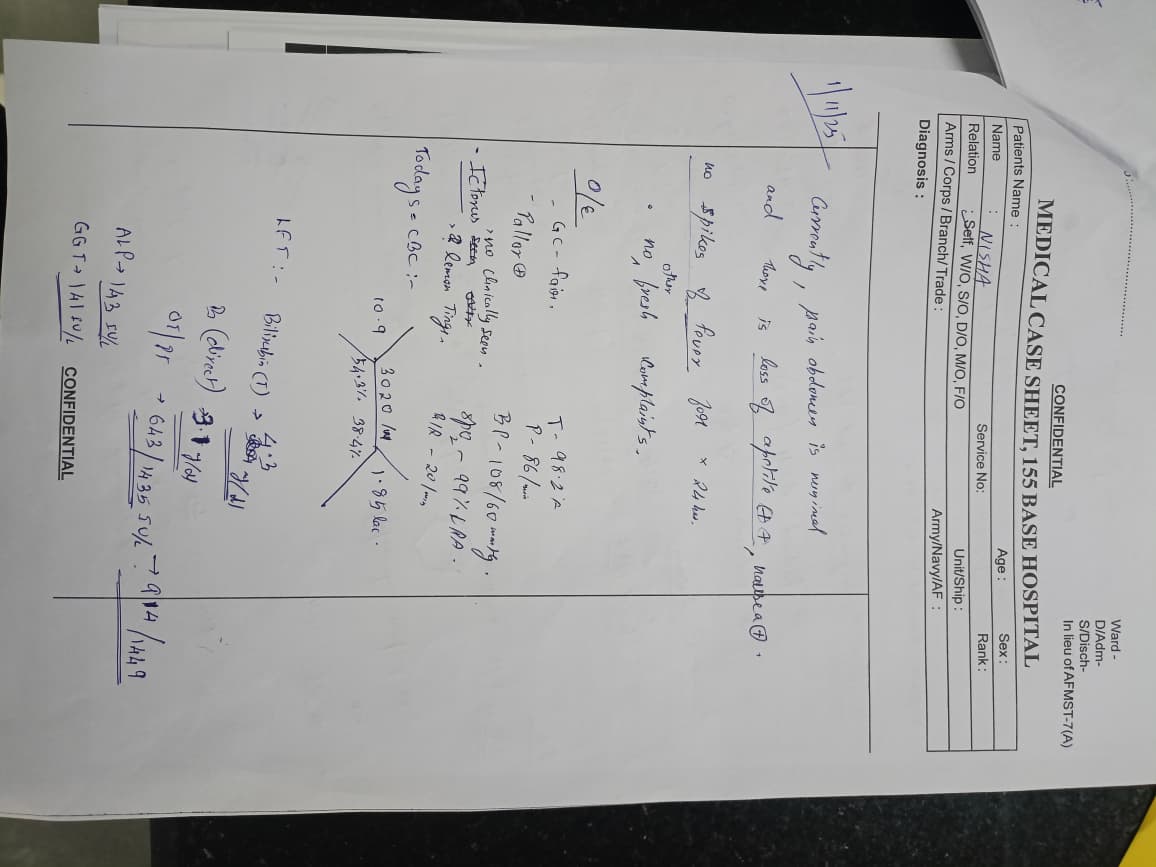 CONFIDENTIAL
Ward -
D/Adm-
S/Disch-
In lieu of AFMST-7(A)
MEDICAL CASE SHEET, 155 BASE HOSPITAL
Patients Name :
Name : NISHA Service No: Age : Sex :
Relation : Self, W/O, S/O, D/O, M/O, F/O Unit/Ship : Rank :
Arms / Corps / Branch/ Trade : Army/Navy/AF :
Diagnosis :
1/11/25
Currently, pain abdomen is
and there is loss of ++, nausea ⊕.
no spikes of fever for x 24 hr.
• no other fresh complaints.
O/E
- GC - fair. T - 98.2°F
- Pallor ⊕ P - 86/min
BP - 108/60 mmHg.
• Icterus → no clinically seen. SPO2 - 99% RA.
→ Lemon Tinge. - 20/min
Todays = CBC :-
10.9 3020 1.85 lac.
54.3% 38.4%
LFT :- Bilirubin (T) → 4.3 g/dl
B (direct) → 3.1 g/dl
OT/PT → 643/1435 IU/L → 914/1449
ALP → 143 IU/L
GGT → 141 IU/L
CONFIDENTIAL